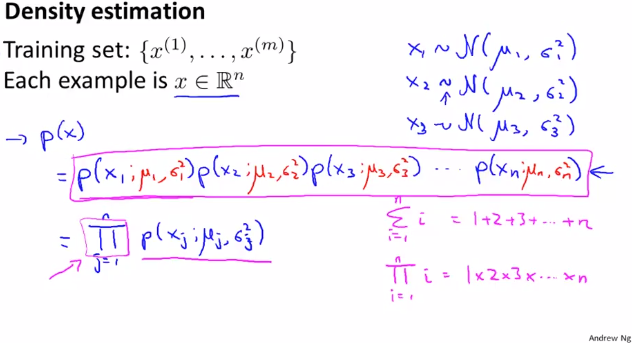 Density estimation
Training set: {x^(1), . . . , x^(m)}
Each example is x ∈ ℝ^n
x₁ ~ N(μ₁, σ₁²)
x₂ ~ N(μ₂, σ₂²)
x₃ ~ N(μ₃, σ₃²)
→ p(x)
= p(x₁; μ₁, σ₁²) p(x₂; μ₂, σ₂²) p(x₃; μ₃, σ₃²) ··· p(xₙ; μₙ, σₙ²) ←
= ∏_{j=1}^{n} p(xⱼ; μⱼ, σⱼ²)
∑_{i=1}^{n} i = 1+2+3+···+n
∏_{i=1}^{n} i = 1×2×3×···×n
Andrew Ng